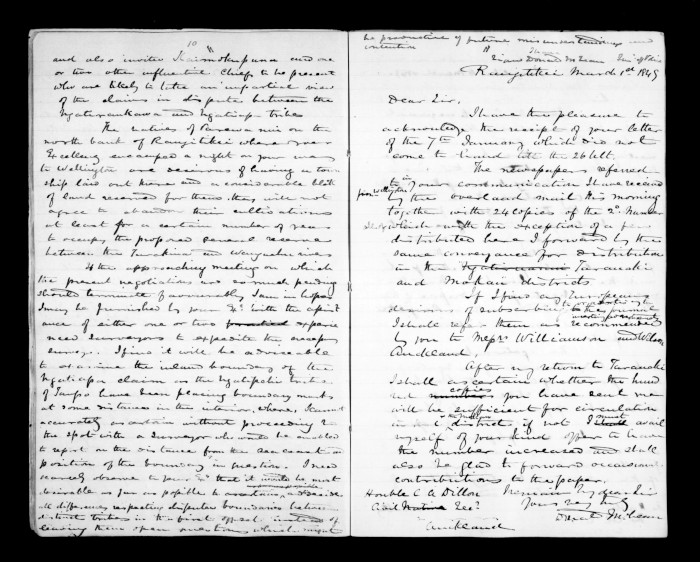 10
and also invited Kaimokupuna and one
or two other influential chiefs to be present
who are likely to take an impartial view
of the claims in dispute between the
Ngateraukawa and Ngatiapa tribes
The natives of Parewanui on the
north bank of Rangitikei where your
Excellency encamped a night on your way
to Wellington are desirous of having a town
ship laid out there and a considerable block
of land reserved for them; they will not
agree to abandon their cultivations
at least for a certain number of years
to occupy the proposed general reserve
between the Turakina and Wangaehu rivers
If the approaching meeting on which
the present negotiations are so much pending
should terminate favourably I am in hopes
I may be furnished by your Ey. with the assist
ance of either one or two experie
nced surveyors to expedite the necessary
surveys. I find it will be advisable
to examine the inland boundary of the
Ngatiapa claim as the Ngatipehi tribes
of Taupo have been placing boundary marks
at some distance in the interior, where, I cannot
accurately ascertain without proceeding to
the spot with a Surveyor who would be enabled
to report on the distance from the sea coast and
position of the boundary in question. I need
scarcely observe to your Ey. that it would be most
desirable as far as possible to ascertain, & decide
all differences respecting disputed boundaries between
distinct tribes in the first offset instead of
leaving them open questions which might
be productive of future misunderstandings and
contention
Signed Donald McLean
Rangitikei March 1st 1849
Dear Sir,
I have the pleasure to
acknowledge the receipt of your letter
of the 7th January which did not
come to hand till the 26 ult.
The newspapers referred
to in your communication I have received
from Wellington
by the overland mail this morning
together with 24 copies of the 2d. Number
which with the exception of a few
distributed here I forward by the
same conveyance for distribution
in the Taranaki
and Mokau districts
If I find any Europeans
desirous of subscribing
I shall refer them as recommended
by you to Messrs Williamson and Wilson
Auckland.
After my return to Taranaki
I shall ascertain whether the hund
red copies you have sent me
will be sufficient for circulation
in districts, if not I must avail
myself of your kind offer to have
the number increased and shall
also be glad to forward occasional
contributions to the paper,
I remain my dear Sir
Yours very truly
Donald McLean
Honble C A Dillon
Civil Secy
Auckland